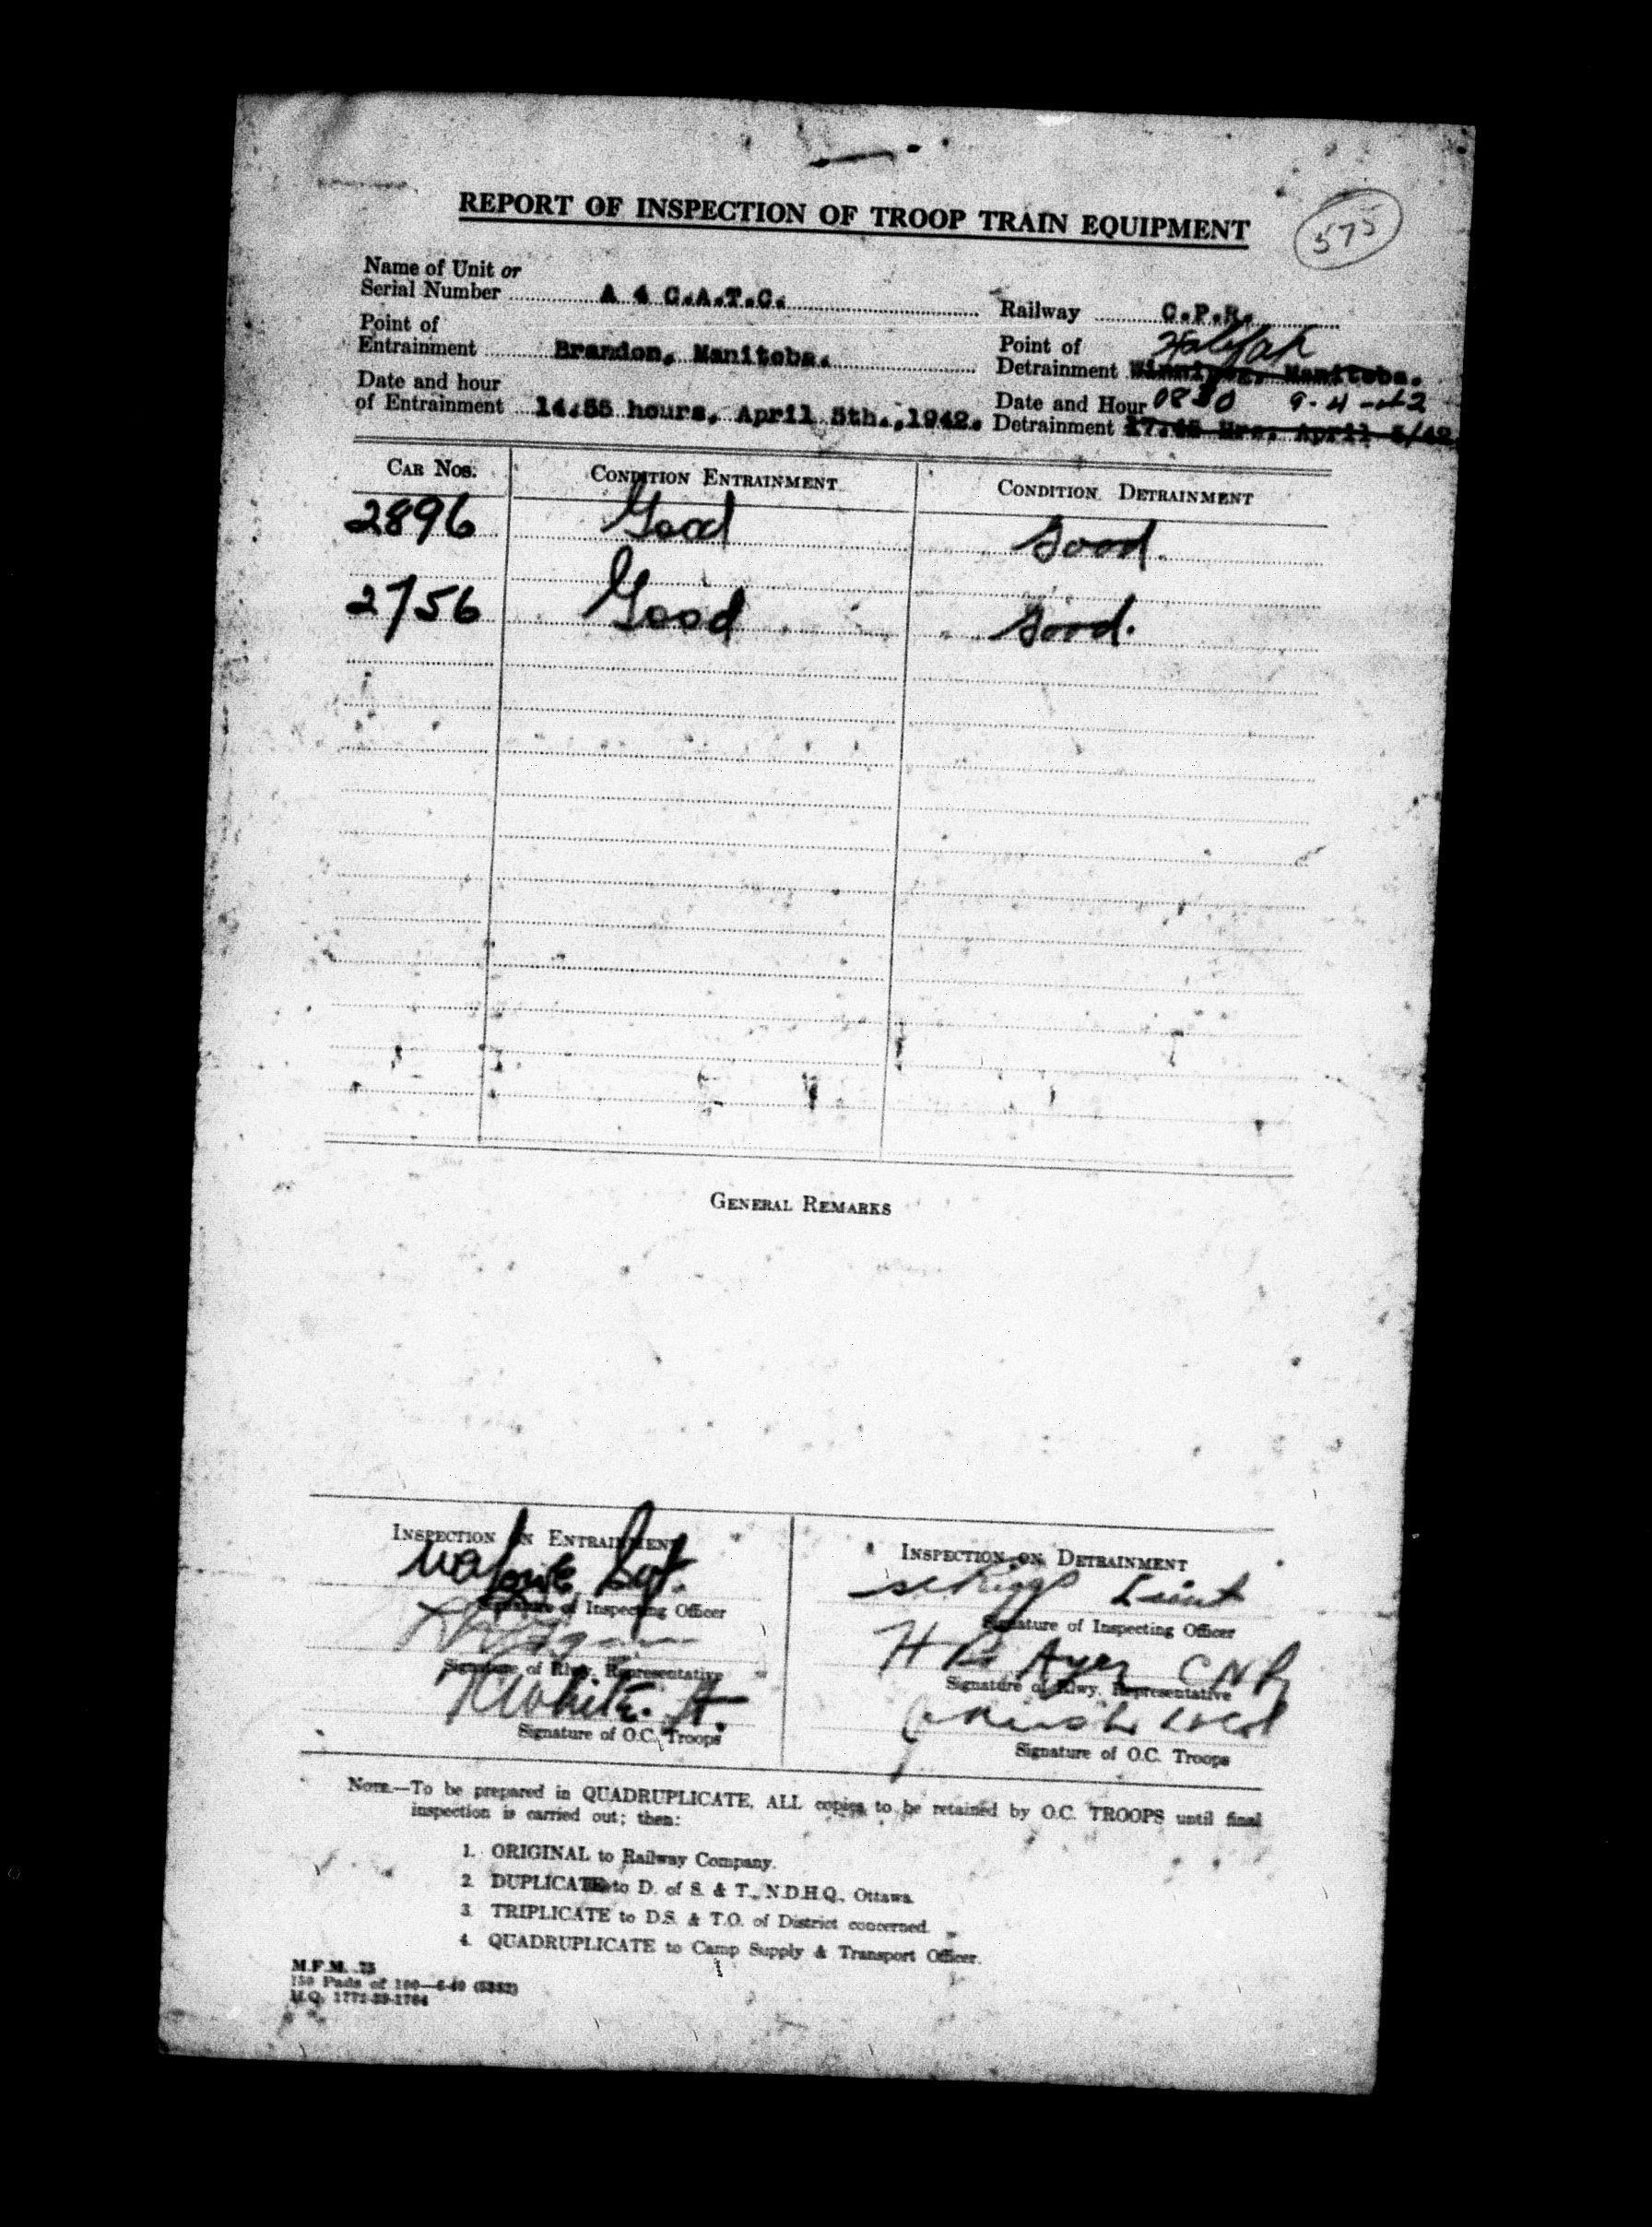 REPORT OF INSPECTION OF TROOP TRAIN EQUIPMENT
575
Name of Unit or
Serial Number A 4 C.A.T.C.
Railway C.P.R.
Point of
Entrainment Brandon, Manitoba.
Halifax
Point of
Detrainment Winnipeg, Manitoba.
Date and hour
of Entrainment 14.55 hours, April 5th.,1942.
Date and Hour 0830 9-4-42
Detrainment 17.45 Hrs. April 5/42
CAR NOS. CONDITION ENTRAINMENT CONDITION DETRAINMENT
2896 Good Good.
2756 Good Good.
GENERAL REMARKS
INSPECTION ON ENTRAINMENT
Signature of Inspecting Officer
Signature of Rlwy. Representative
White. Lt.
Signature of O.C. Troops
INSPECTION ON DETRAINMENT
Lieut
Signature of Inspecting Officer
Ayer CNR
Signature of Rlwy. Representative
Signature of O.C. Troops
NOTE.—To be prepared in QUADRUPLICATE, ALL copies to be retained by O.C. TROOPS until final
inspection is carried out; then:
1. ORIGINAL to Railway Company.
2. DUPLICATE to D. of S. & T., N.D.H.Q., Ottawa.
3. TRIPLICATE to D.S. & T.O. of District concerned.
4. QUADRUPLICATE to Camp Supply & Transport Officer.
M.F.M. 75
150 Pads of 100—6-40 (5352)
H.Q. 1772-39-1764